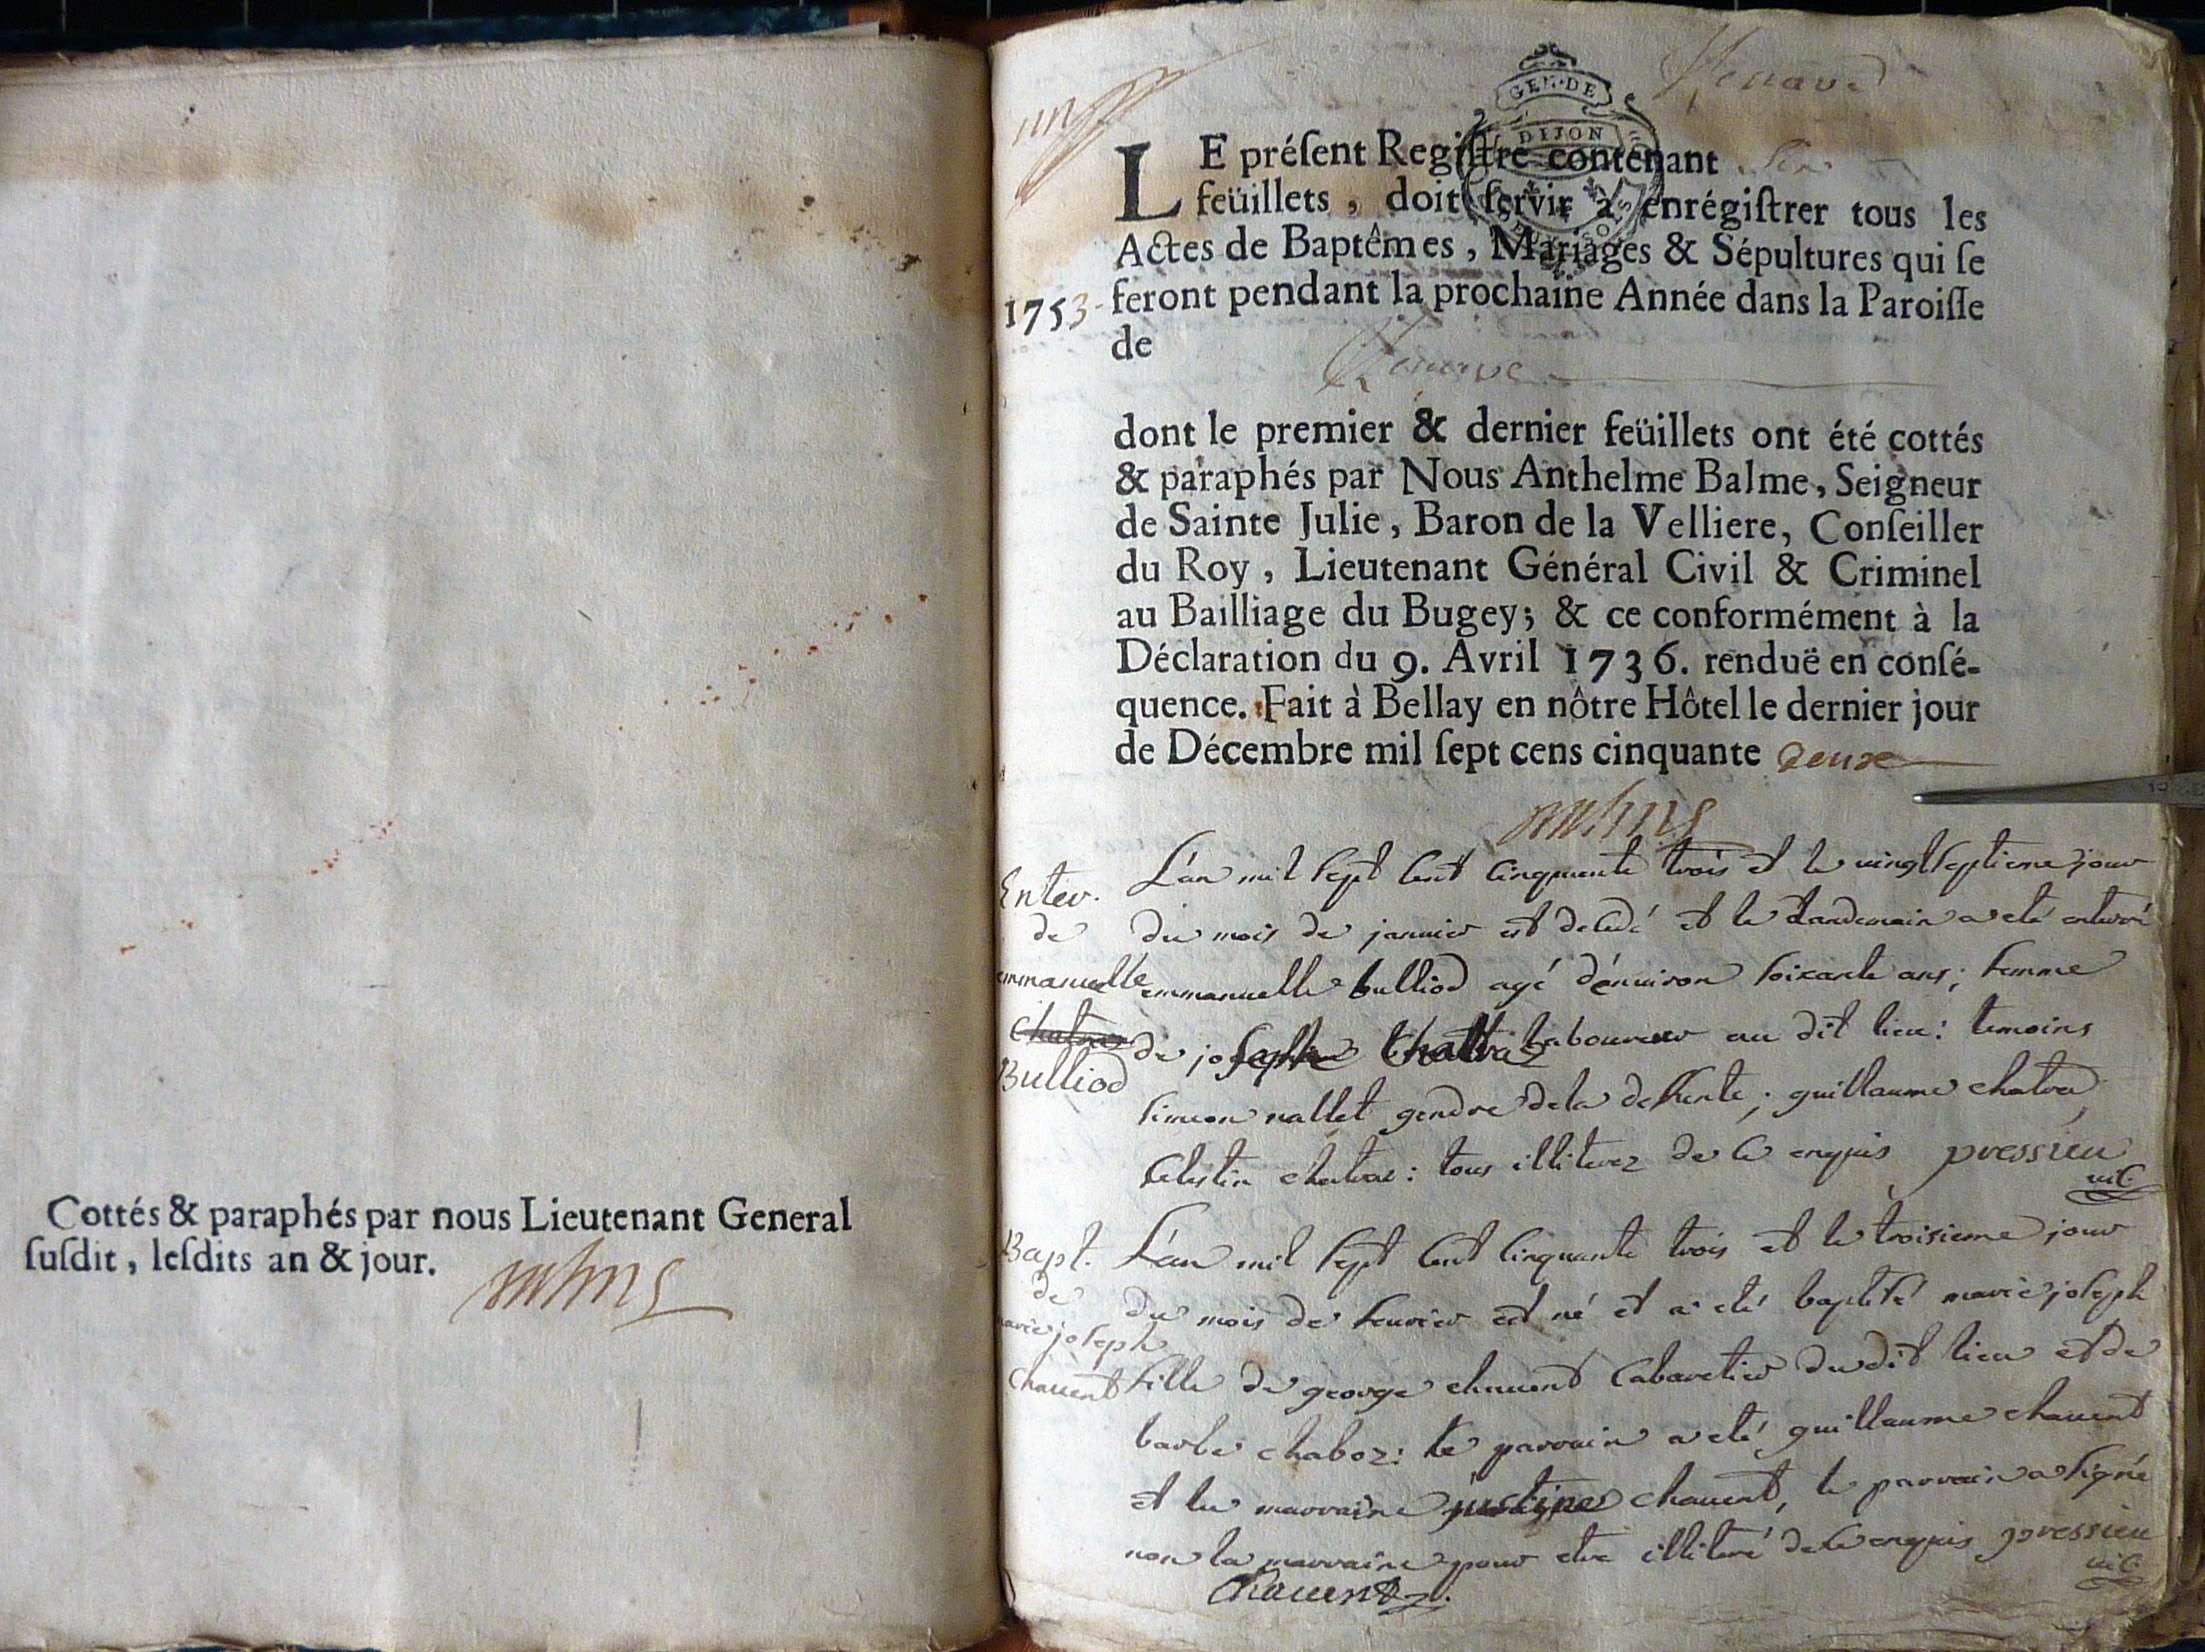 Cottés & paraphés par nous Lieutenant General
ſuſdit, leſdits an & jour.
GEN·DE
DIJON
LE préſent Regiſtre contenant
feüillets, doit ſervir à enrégiſtrer tous les
Actes de Baptêmes, Mariages & Sépultures qui ſe
1753 feront pendant la prochaine Année dans la Paroiſſe
de
dont le premier & dernier feüillets ont été cottés
& paraphés par Nous Anthelme Balme, Seigneur
de Sainte Julie, Baron de la Velliere, Conſeiller
du Roy, Lieutenant Général Civil & Criminel
au Bailliage du Bugey; & ce conformément à la
Déclaration du 9. Avril 1736. renduë en conſé-
quence. Fait à Bellay en nôtre Hôtel le dernier jour
de Décembre mil ſept cens cinquante deux
Enter.
de
emmanuelle
Chatra
Bulliod
L'an mil sept cent cinquante trois et le vingtseptieme jour
du mois de janvier est decedé et le landemain a eté enterré
emmanuelle bulliod agé d'énviron soixante ans; femme
de joseph Chatra laboureur au dit lieu: temoins
simeon nallet gendre de la deffunte; guillaume chatra
Celestin chatra: tous illiterez de ce enquis pressieu
vic.
Bapt.
de
marie joseph
Chauent
L'an mil sept cent cinquante trois et le troisieme jour
du mois de feurier est né et a eté baptisé marie joseph
fille de george chauent Cabaretier du dit lieu et de
barbe chaboz: le parrain a eté guillaume chauent
et la marraine justine chauent, le parrain a signé
non la marraine pour etre illiteré de ce enquis pressieu
vic.
Chauent.